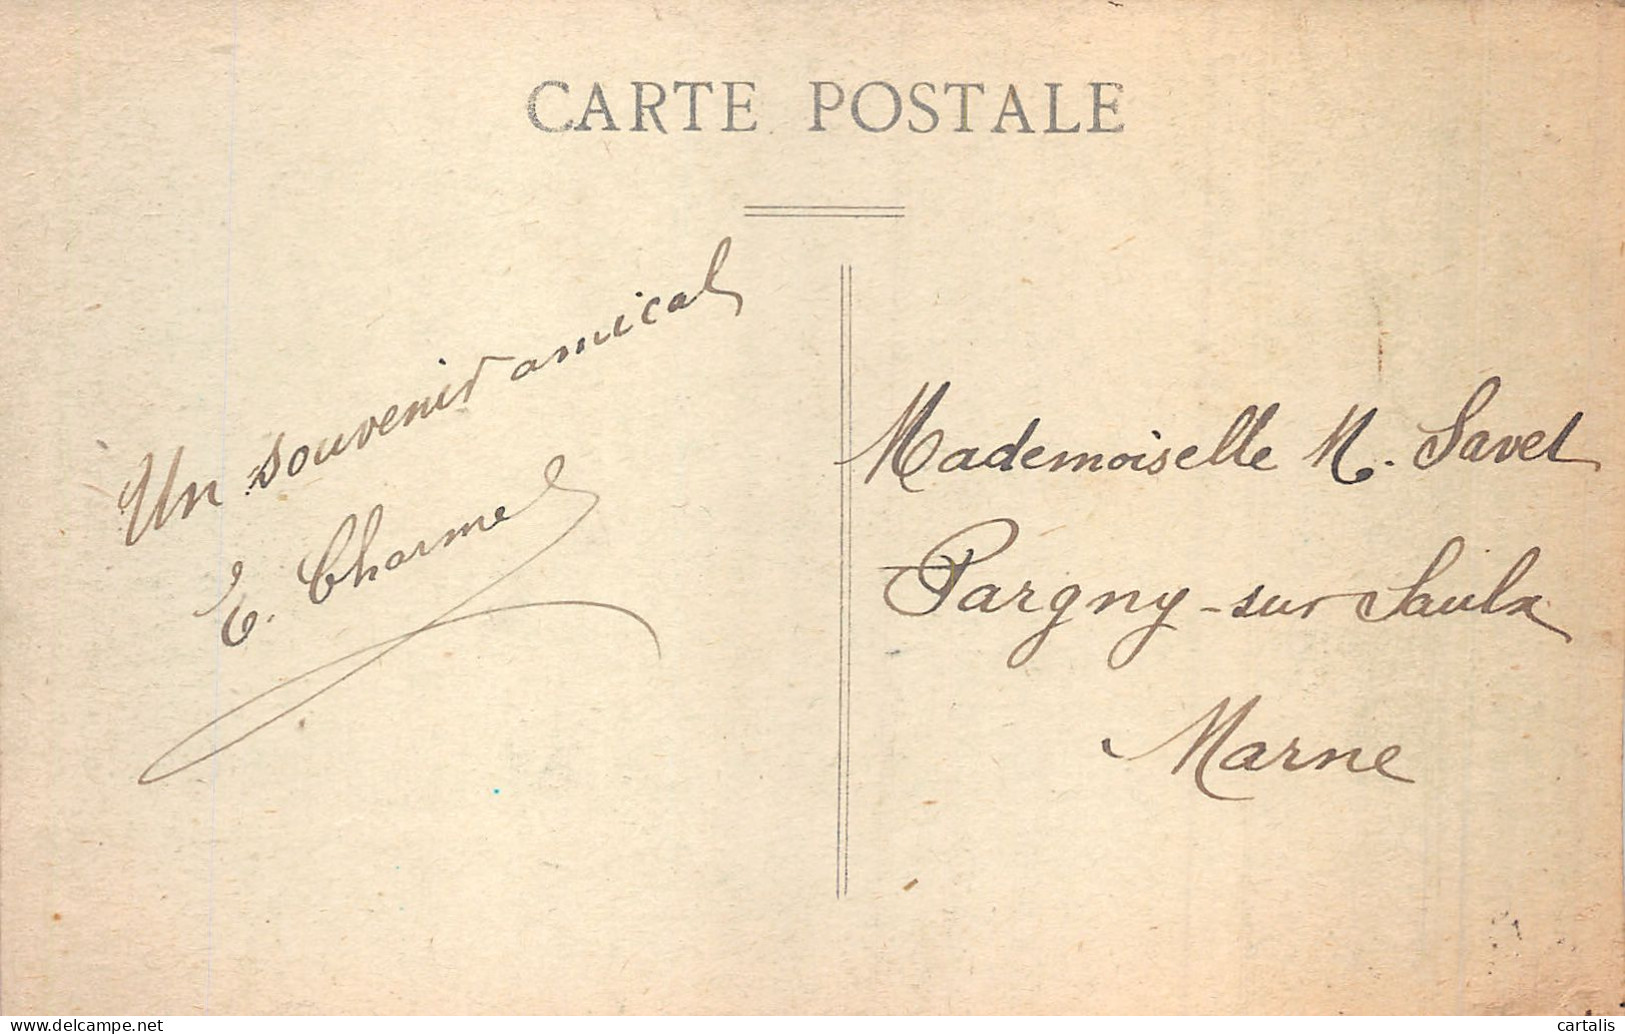 CARTE POSTALE
Un souvenir amical
E. Charmel
Mademoiselle M. Savet
Pargny-sur Saulx
Marne
www.delcampe.net
cartalis